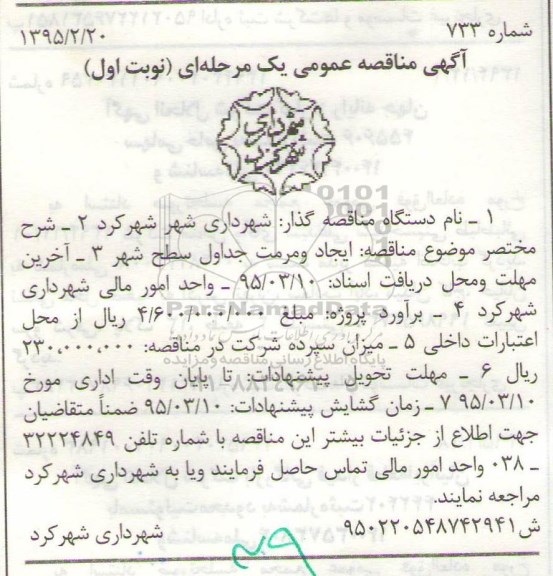 شماره ۷۳۳
۱۳۹۵/۲/۲۰
آگهی مناقصه عمومی یک مرحله‌ای (نوبت اول)
شهرداری
شهرکرد
۱ ـ نام دستگاه مناقصه گذار: شهرداری شهر شهرکرد ۲ ـ شرح
مختصر موضوع مناقصه: ایجاد ومرمت جداول سطح شهر ۳ ـ آخرین
مهلت ومحل دریافت اسناد: ۹۵/۰۳/۱۰ ـ واحد امور مالی شهرداری
شهرکرد ۴ ـ برآورد پروژه: مبلغ ۴/۶۰۰/۰۰۰/۰۰۰ ریال از محل
ParsNamadData
اعتبارات داخلی ۵ ـ میزان سپرده شرکت در مناقصه: ۲۳۰,۰۰۰,۰۰۰
پایگاه اطلاع رسانی مناقصه و مزایده
ریال ۶ ـ مهلت تحویل پیشنهادات: تا پایان وقت اداری مورخ
۹۵/۰۳/۱۰ ۷ ـ زمان گشایش پیشنهادات: ۹۵/۰۳/۱۰ ضمناً متقاضیان
جهت اطلاع از جزئیات بیشتر این مناقصه با شماره تلفن ۳۲۲۲۴۸۴۹
ـ ۰۳۸ واحد امور مالی تماس حاصل فرمایند ویا به شهرداری شهرکرد
مراجعه نمایند.
ش ۹۵۰۲۲۰۵۴۸۷۴۲۹۴۱
شهرداری شهرکرد